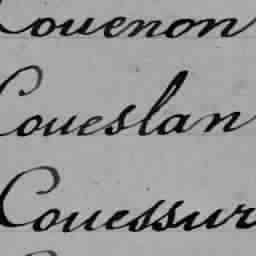 Couenon
Coueslan
Couessur